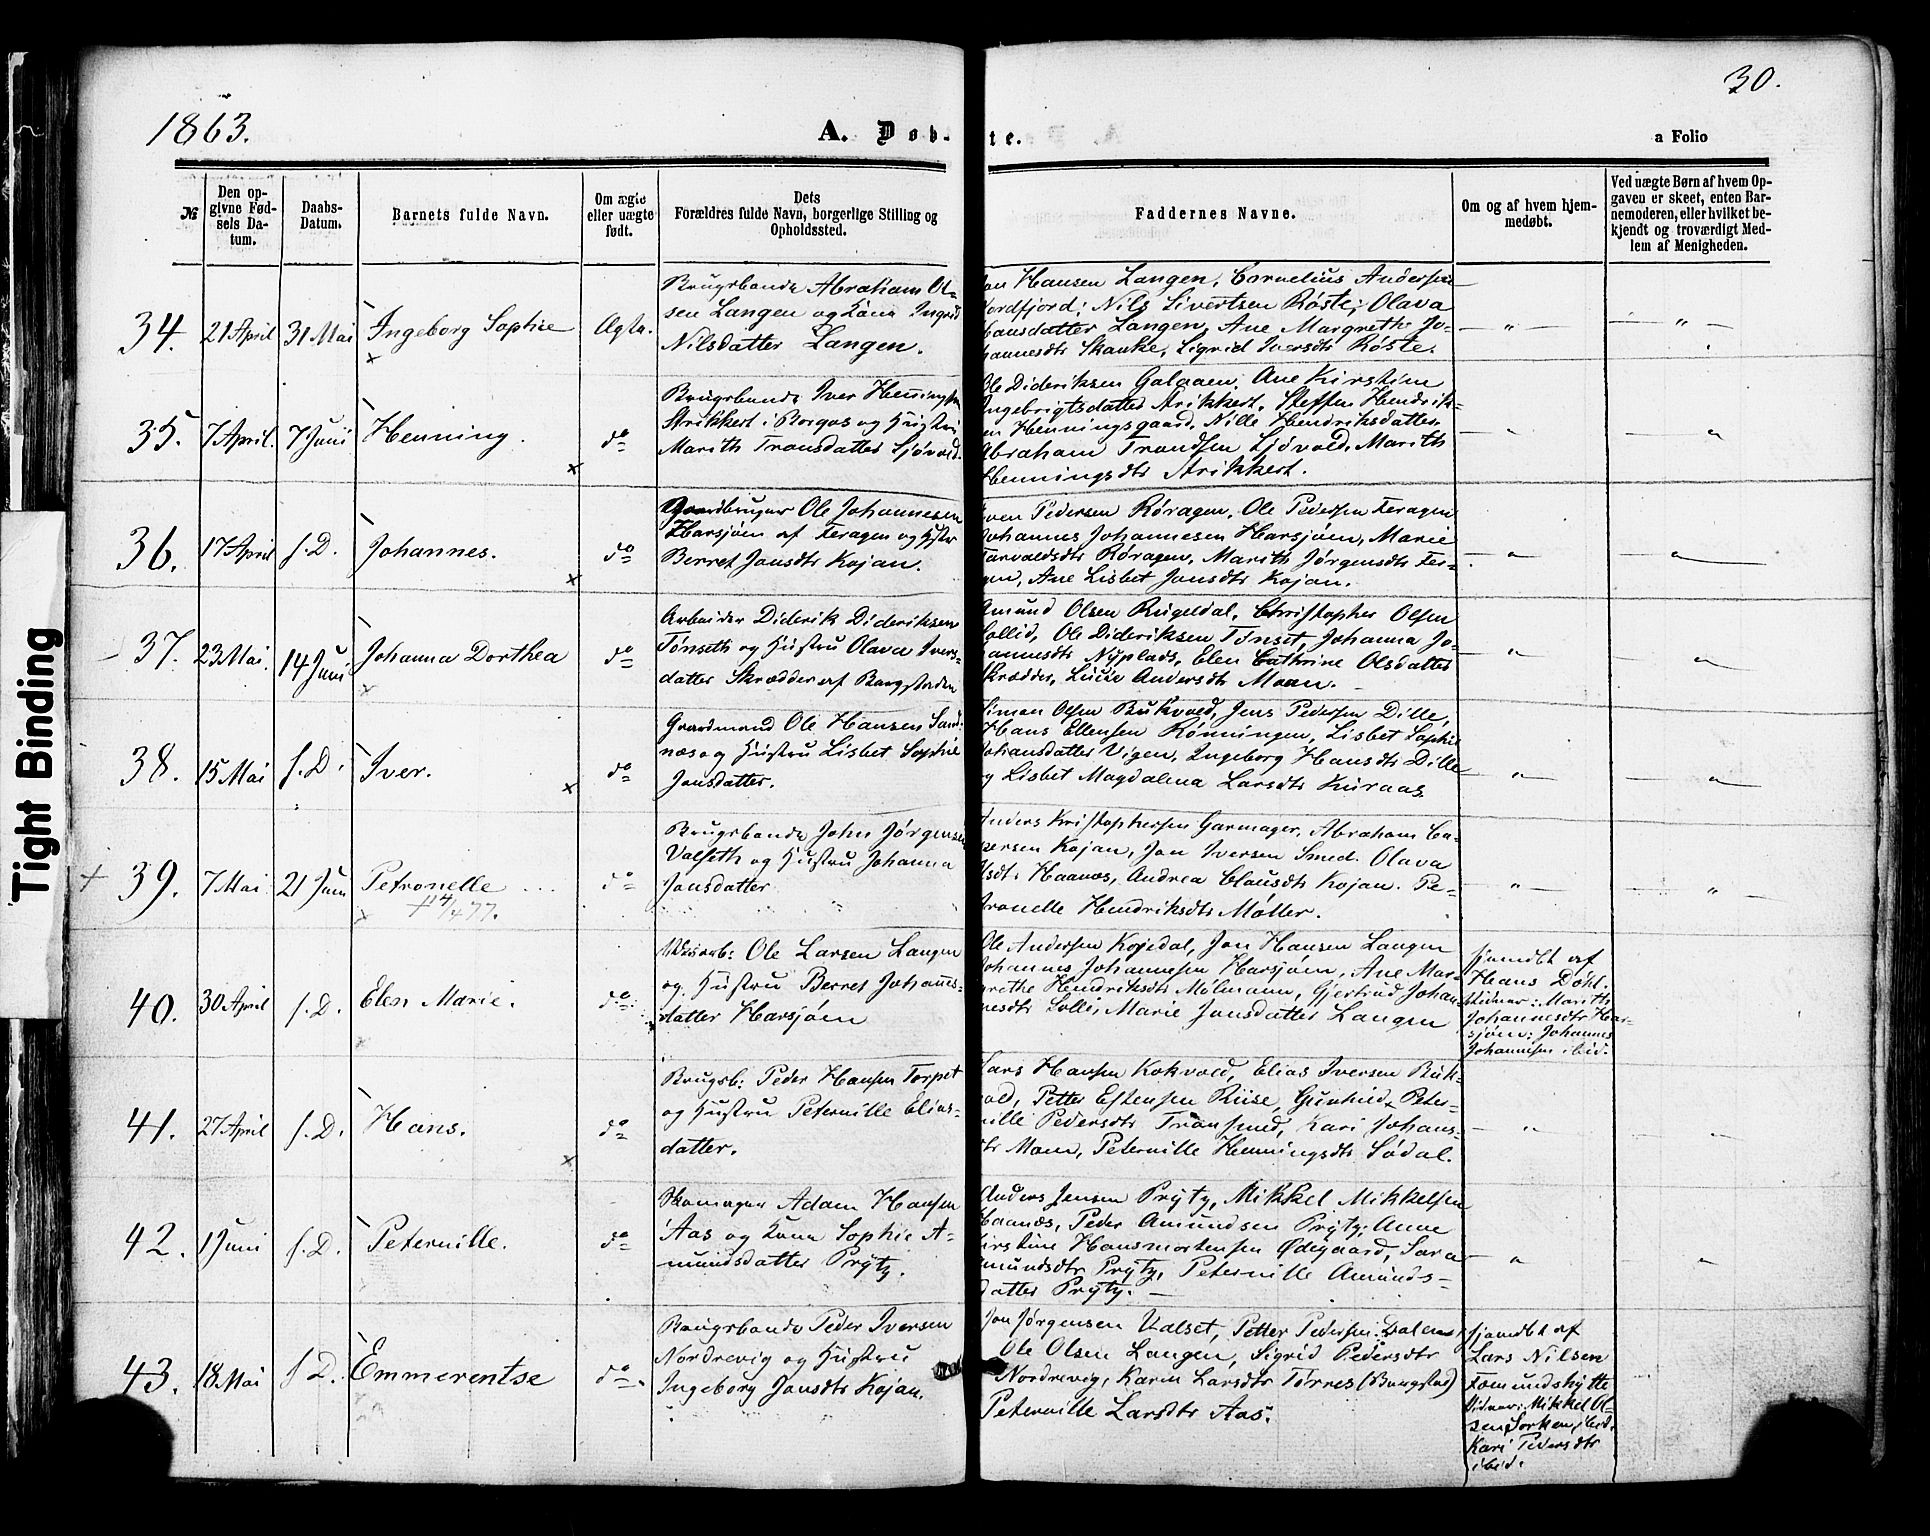 30.
1863.
A. Døb-
te.
a Folio
№
Den op-
givne Fød-
sels Da-
tum.
Daabs-
Datum.
Barnets fulde Navn.
Om ægte
eller uægte
født.
Dets
Forældres fulde Navn, borgerlige Stilling og
Opholdssted.
Faddernes Navne.
Om og af hvem hjem-
medøbt.
Ved uægte Børn af hvem Op-
gaven er skeet, enten Bar-
nemoderen, eller hvilket be-
kjendt og troværdigt Med-
lem af Menigheden.
34. 21 April 31 Mai Ingeborg Sophie Ægte.
Brugsbonde Abraham Ol-
sen Langen og Kone Ingrid
Nilsdatter Langen.
Hansen Langen, Cornelius Andersen
Nordfjord; Nils Sivertsen Røste; Olava
Hansdatter Langen, Ane Margrethe Jo-
hannesdtr Skanke, Sigrid Iversdtr Røste.
— " —
— " —
35. 7 April. 7 Juni Henning. do
Brugsbonde Iver Henningsen
Strikkert i Borgos og Hustru
Marith Tronsdatter Sjøvold.
Ole Dideriksen Galaaen, Ane Kirstine
Ingebrigtsdatter Strikkert, Steffen Hendrik-
sen Henningsgaard, Nille Hendriksdatter
Abraham Trondsen Sjøvold, Marith
Henningsdtr Strikkert.
36. 17 April f. D. Johannes. do
Gaardbruger Ole Johannesen
Harsjøen af Feragen og Hstr
Berret Jonsdtr Kojan.
Pedersen Røragen, Ole Pedersen Feragen
Johannes Johannesen Harsjøen, Marie
Tarvaldsdtr Røragen, Marith Jørgensdtr Fer-
gen, Ane Lisbet Jonsdtr Kojan.
37. 23 Mai. 14 Juni Johanna Dorthea do
Arbeider Diderik Dideriksen
Tønseth og Hustru Olava Ivers-
datter Skrædder af Bergstaden
Amund Olsen Rugeldal, Christopher Olsen
Sollid, Ole Dideriksen Tønset, Johanna Jo-
hannesdtr Nyplads, Elen Cathrine Olsdatter
Skrædder, Luise Andersdtr Moen.
38. 15 Mai f. D. Iver. do
Gaardmand Ole Hansen Sand-
næs og Hustru Lisbet Sophie
Jonsdatter.
Simon Olsen Bukvold, Jens Pedersen Dille,
Hans Ellensen Rønningen, Lisbet Sophie
Johansdatter Vigen, Ingeborg Hansdtr Dille
og Lisbet Magdalena Larsdtr Kuraas.
+ 39. 7 Mai 21 Juni Petronelle do
+ 14/4 77.
Brugsbonde John Jørgensen
Valseth og Hustru Johanna
Jonsdatter
Anders Kristophersen Garmager, Abraham Ca-
spersen Kojan, Jon Iversen Smed. Olava
Olsdtr Haanæs, Andrea Clausdtr Kojan. Pe-
tronelle Hendriksdtr Møller.
40. 30 April f. D. Elen Marie. do
Ole Larsen Langen
og Hustru Berret Johannes-
datter Harsjøen
Ole Andersen Kojedal, Jon Hansen Langen
Johannes Johannesen Harsjøen, Ane Mar-
grethe Hendriksdtr Mølmann, Gjertrud Johan-
nesdtr Solli, Marie Jonsdatter Langen
hjemdbt af
Hans Døhl.
Vidner: Marith
Johannesdtr Har-
sjøen: Johannes
Johannesen ibid.
41. 27 April f. D. Hans. do
Brugsb: Peder Hansen Torpet
og Hustru Peternille Elias-
datter.
Lars Hansen Kokvold, Elias Iversen Buk-
vold, Petter Estensen Riise, Gunhild Peter-
nille Pedersdtr Trønsmed, Kari Johans-
dtr Moen, Peternille Henningsdtr Sødal.
42. 1 Juni f. D. Peternille. do
Skomager Adam Hansen
Aas og Kone Sophie A-
mundsdatter Prÿtz.
Anders Jensen Prÿtz, Mikkel Mikkelsen
Haanæs, Peder Amundsen Prÿtz, Anne
Kirstine Hansmortensen Ødegaard, Sara
Amundsdtr Prÿtz, Peternille Amunds-
datter Prÿtz.
43. 18 Mai f. D. Emmerentse do
Brugsbonde Peder Iversen
Nordrevig og Hustru
Ingeborg Jonsdtr Kojan.
Jon Jørgensen Valset, Petter Pedersen Dalen,
Ole Olsen Langen, Sigrid Pedersdtr
Nordrevig, Karen Larsdtr Tørres (Bergstad)
Peternille Larsdtr Aas.
hjemdbt af
Lars Nilsen
Fæmundshytte
Vidner: Mikkel Ol-
sen Sorken ibid.
Kari Pedersdtr
ibid.
Tight Binding